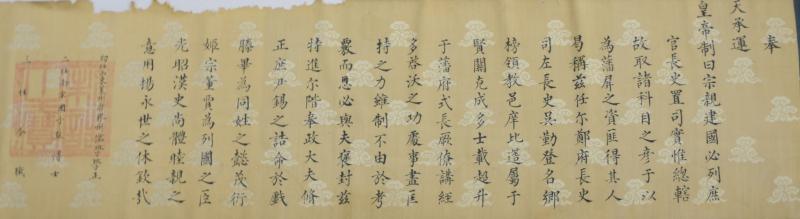 奉
天承運
皇帝制曰宗親建國必列庶
官長史置司實惟總轄
故取諸科目之彥于以
為藩屏之資匪得其人
曷稱茲任尔鄭府長史
司左長史吳勤登名鄉
榜領教邑庠比遷屬于
賢關克成多士載超升
于藩府式長厥僚講經
多啓沃之功處事盡匡
持之力雖制不由於考
覈而恩必與夫褒封茲
特進尔階奉政大夫脩
正庶尹錫之誥命於戲
滕畢為同姓之懿茂衍
姬宗董賈為列國之臣
光昭漢史尚體睦親之
意用揚永世之休欽哉
二任
三任今職